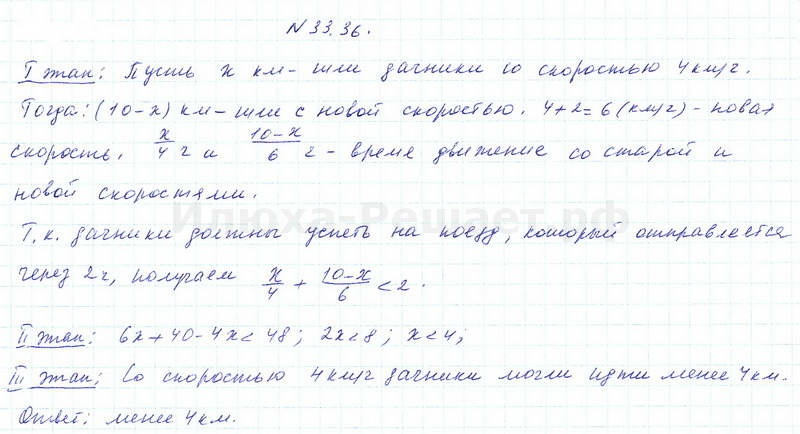 N 33.36.
I этап: Пусть x км – шли дачники со скоростью 4 км/ч.
Тогда: (10-x) км – шли с новой скоростью. 4+2=6 (км/ч) – новая
скорость. x/4 ч и (10-x)/6 ч – время движение со старой и
новой скоростями.
Илюха-Решает.рф
Т.к. дачники должны успеть на поезд, который отправляется
через 2 ч, получаем x/4 + (10-x)/6 < 2.
II этап: 6x+40-4x<48; 2x<8; x<4;
III этап: Со скоростью 4 км/ч дачники могли идти менее 4 км.
Ответ: менее 4 км.